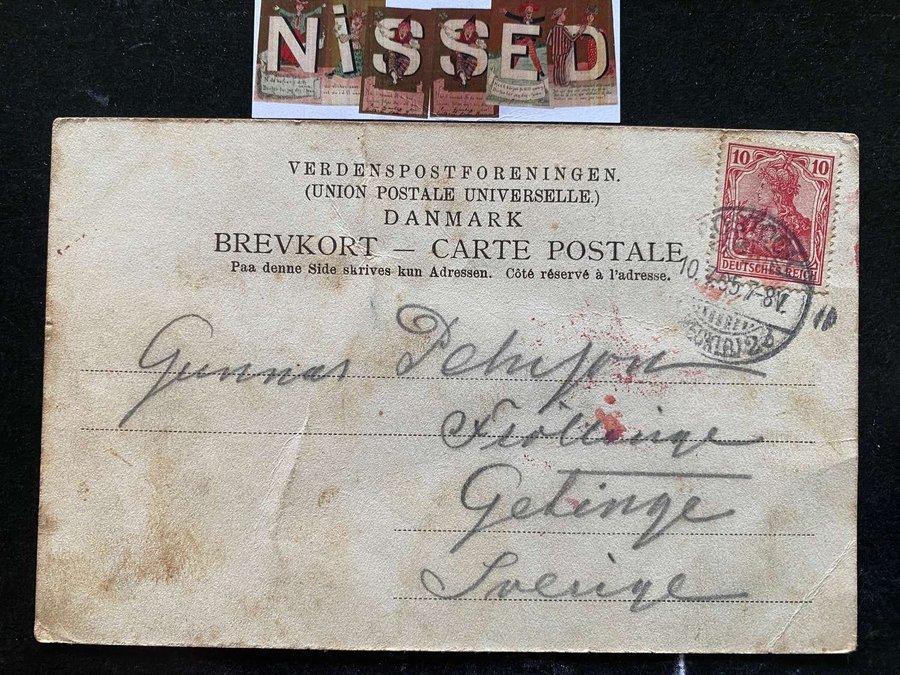 NiSSED
VERDENSPOSTFORENINGEN.
(UNION POSTALE UNIVERSELLE.)
DANMARK
BREVKORT — CARTE POSTALE
Paa denne Side skrives kun Adressen. Côté réservé à l'adresse.
10 10
DEUTSCHES REICH
7-8V.
Gunnar
Getinge
Sverige